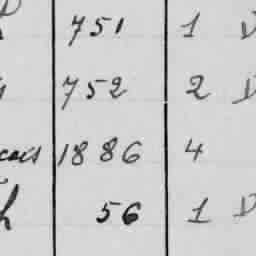 751 1 D
752 2 D
cais 1886 4
h 56 1 D